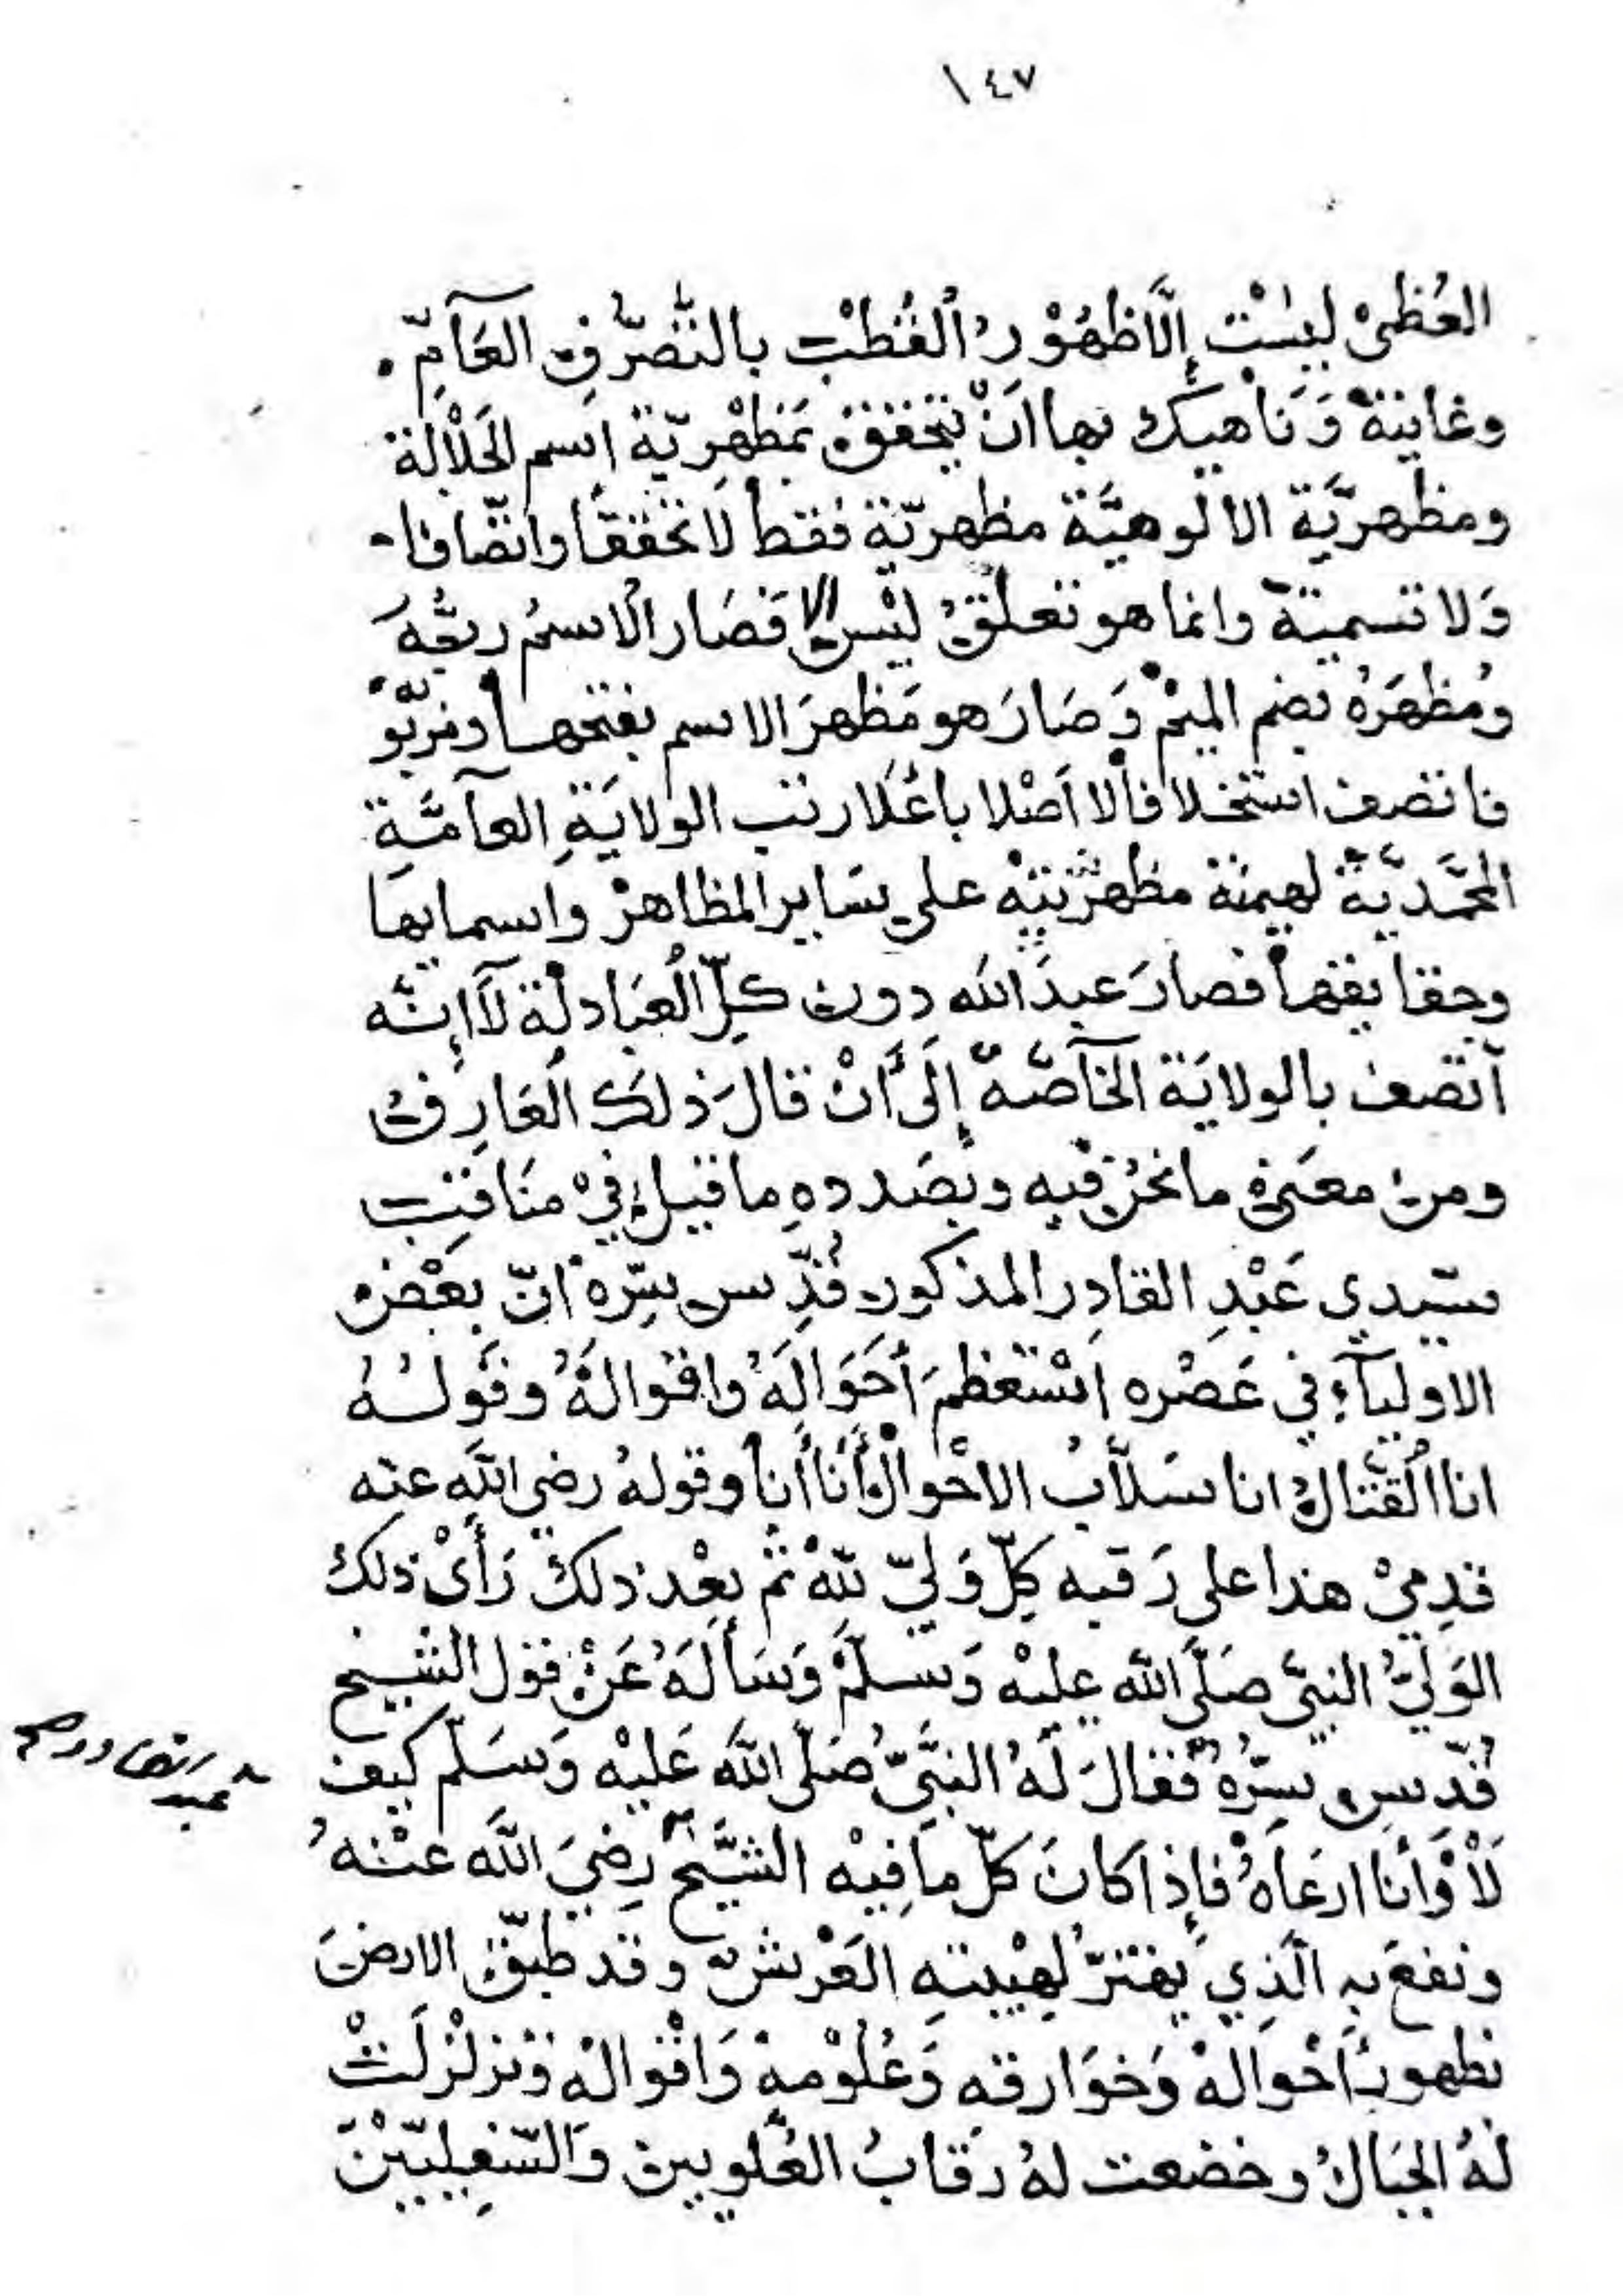 ١٤٧
العُظمىْ ليسْت إلَّا ظهُوْرُ القُطبْ بالتَّصرُّفِ العَآمّ.
وغايتهُ وَنَاهيكَ بها انْ يتحققَ بمَظهْرِيّة اسم الجَلَالة
ومظهريَّة الالوهيَّة مظهريّة فقط لا تحققًا واتّصافا
وَلا تسمية وانما هو تعلقٌ ليْسَ الا فصَار الاسمُ ربُّهُ
ومُظهِرَهُ بضم الميمْ وَصَارَ هو مَظهرَ الاسم بفتحها ومربُو
فاتصف استخلافا لا اصْلا باعْلا رتب الولايَةِ العآمَّةِ
المحمَّديَّة لهيمنة مظهريَّتهْ على سَاير المظاهرْ واسمايها
وحقايقها فصارَ عبدَ الله دون كلّ العبَادلة لَا إنَّه
اتّصف بالولايَة الخآصّة إلَى أَنْ قالَ ذلكَ العَارِفُ
ومن معنَى ما نحْنُ فيه وبصَددهِ ما قيلَ فيْ منَاقبِ
سيّدي عَبْدِ القادِر المذكور قُدِّس سِرّه انّ بعْضَ
الاوليآءِ في عَصْره اسْتعْظمَ أحَوَالَهُ واقوالهُ وقَولُهُ
انا القتّالُ انا سَلَّابُ الاحْوالْ أَنَا أَنا وقولهُ رضي اللهِ عنه
قدمِيْ هذا على رَقبه كلِّ وَليّ للهْ ثم بعْد ذلكْ رَأَىْ ذلكَ
الوَليُّ النبيّ صَلَّى الله عليْه وَسلّمْ وَسَألَهُ عَنْ قول الشيخ
قُدّس سِرُّهُ فقالَ لَهُ النبيُّ صَلَّى اللهَ عَليْه وَسَلّم كيف
لَاْ وَأنا ارعَاهُ فإذا كانَ كلّ ما فيْه الشيَّخ رضِيَ اللهَ عنْهُ
ونفعَ به الّذِي يهْتزُّ لهيْبتهِ العَرْشُ وقد طبّقَ الارضَ
ظهورُ احْوالهْ وَخوَارقه وَعُلوْمهْ وَاقْوالهُ وتزلْزلَتْ
لهُ الجبَالُ وخضعت لهُ رقَابُ العُلويين وَالسّفِليّيْنَ